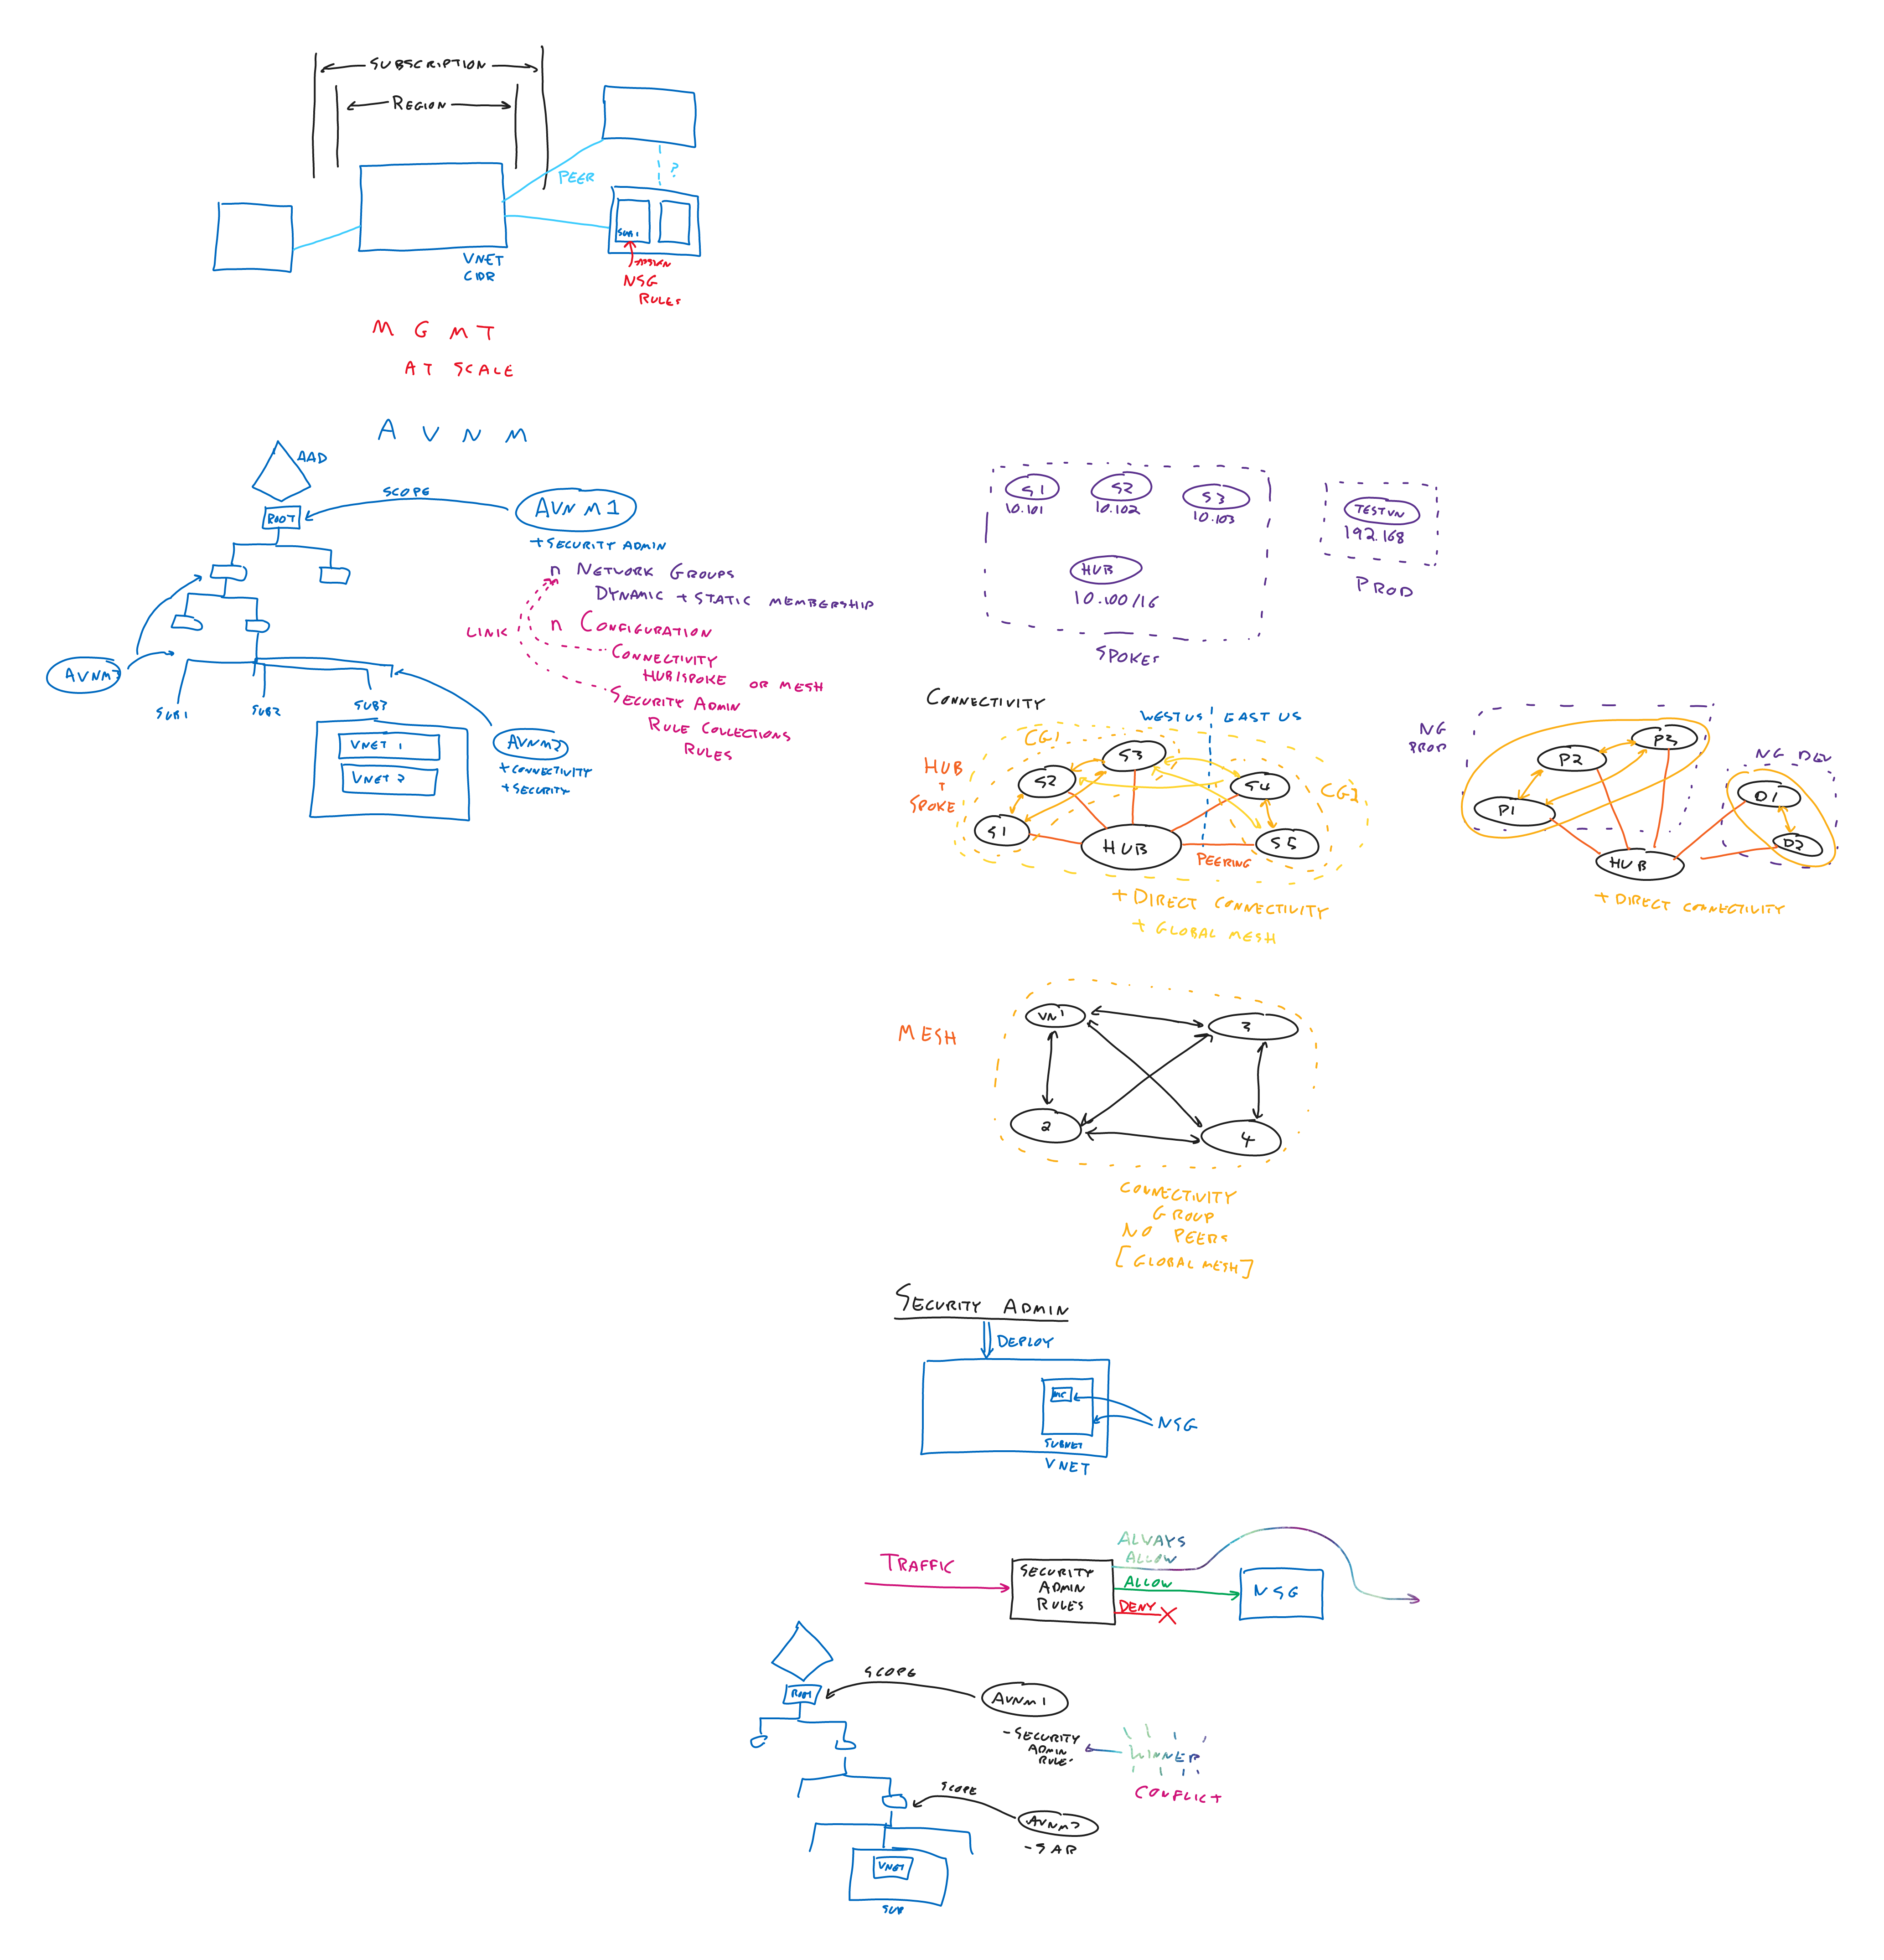 SUBSCRIPTION
REGION
PEER
?
SUB1
VNET
CIDR
ASSIGN
NSG
RULES
MGMT
AT SCALE
AVNM
AAD
SCOPE
AVNM1
ROOT
+ SECURITY ADMIN
n NETWORK GROUPS
DYNAMIC + STATIC MEMBERSHIP
LINK
n CONFIGURATION
CONNECTIVITY
HUB/SPOKE OR MESH
SECURITY ADMIN
RULE COLLECTIONS
RULES
SUB1
SUB2
SUB3
VNET 1
VNET 2
AVNM2
+ CONNECTIVITY
+ SECURITY
S1
S2
S3
10.101
10.102
10.103
HUB
10.100/16
SPOKES
TESTVN
192.168
PROD
CONNECTIVITY
WEST US
EAST US
CG1
HUB
+
SPOKE
S3
S2
S4
CG2
S1
HUB
S5
PEERING
+ DIRECT CONNECTIVITY
+ GLOBAL MESH
NG
PROD
P3
P2
P1
NG DEV
D1
D2
HUB
+ DIRECT CONNECTIVITY
MESH
VN1
3
2
4
CONNECTIVITY
GROUP
NO PEERS
[GLOBAL MESH]
SECURITY ADMIN
DEPLOY
NIC
NSG
SUBNET
VNET
TRAFFIC
SECURITY
ADMIN
RULES
ALWAYS
ALLOW
ALLOW
DENY
NSG
SCOPE
ROOT
AVNM1
- SECURITY
ADMIN
RULES
WINNER
CONFLICT
SCOPE
AVNM2
- SAR
VNET
SUB